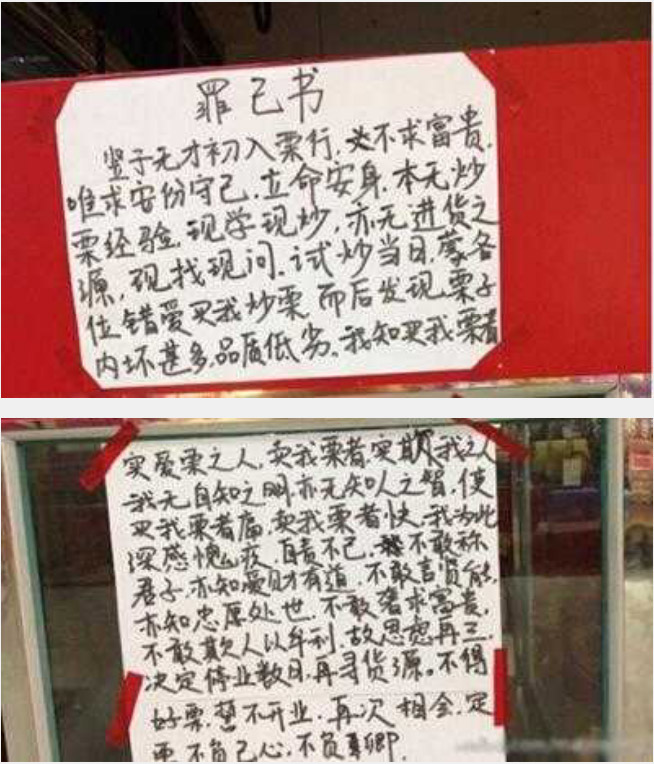 罪己书
竖于无才初入栗行，不求富贵，
唯求安份守己，立命安身，本无炒
栗经验，现学现炒，亦无进货之
源，现找现问，试炒当日，蒙各
位错爱买我炒栗，而后发现栗子
内坏甚多，品质低劣。我知买我栗者
实爱栗之人，卖我栗者，实欺我之人
我无自知之明，亦无知人之智，使
买我栗者痛，卖我栗者快，我为此
深感愧疚，自责不已，不敢称
君子，亦知爱财有道，不敢言贤能，
亦知忠厚处世，不敢奢求富贵，
不敢欺人以牟利，故思想再三，
决定停业数日，再寻货源。不得
好栗，誓不开业，再次相会，定
更不负己心，不负卿